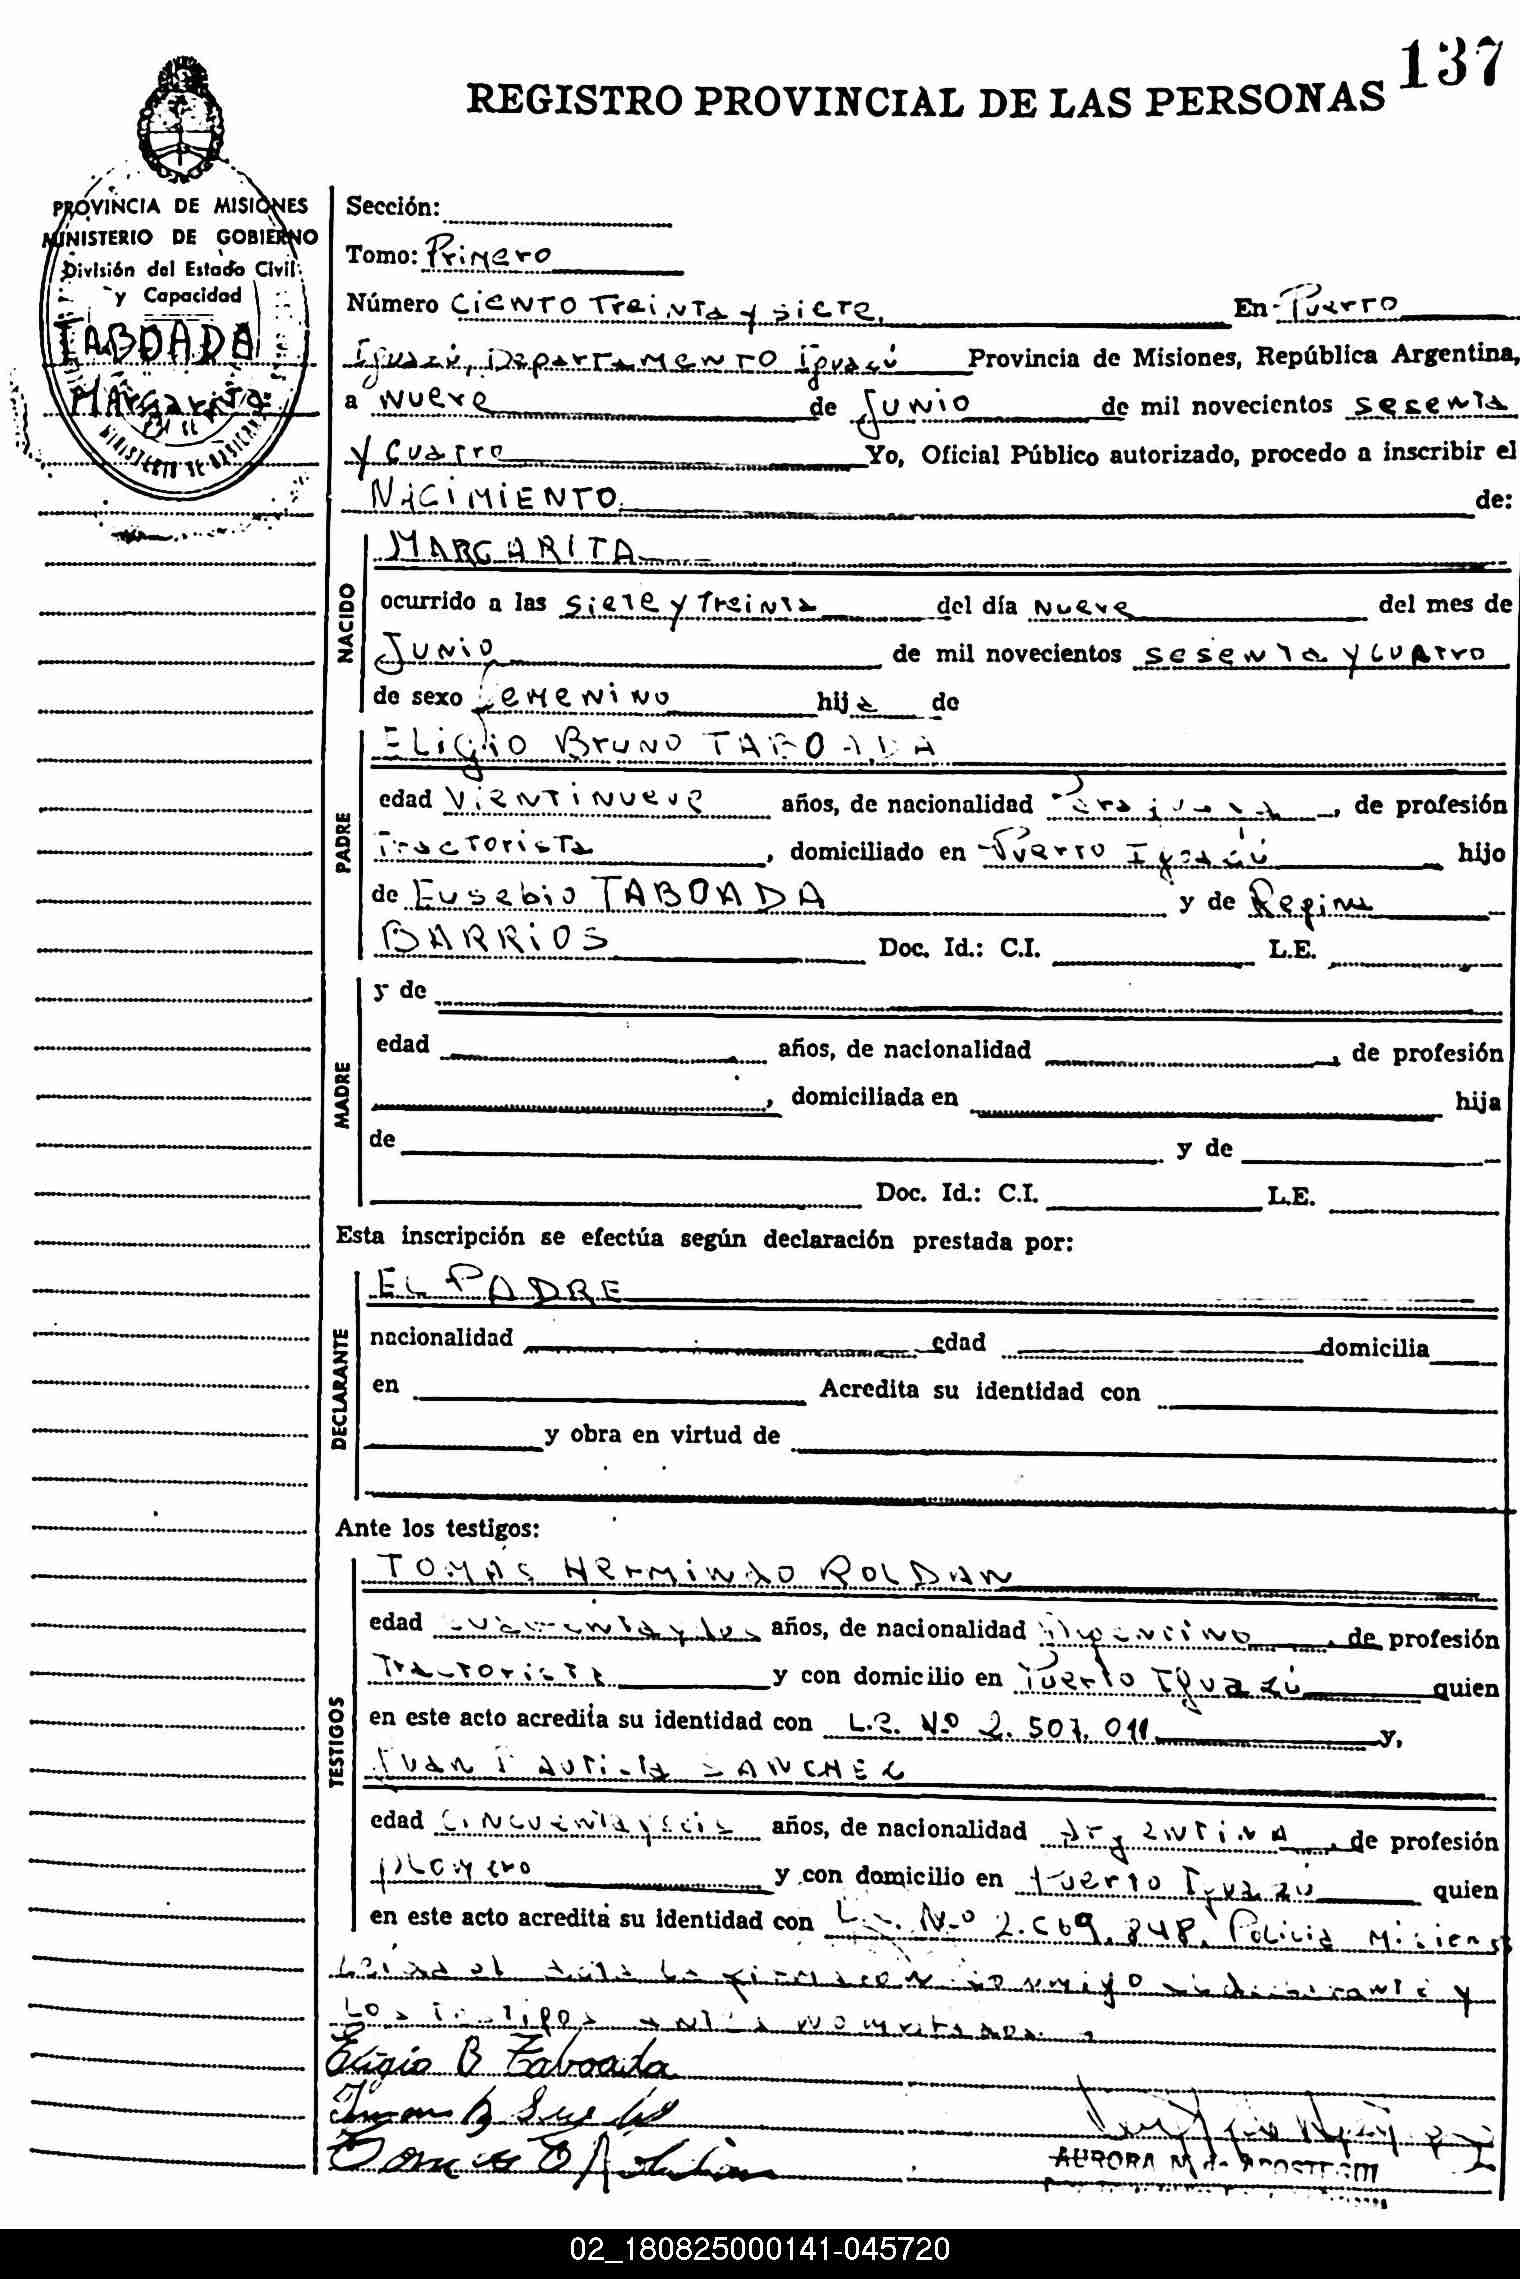 137
REGISTRO PROVINCIAL DE LAS PERSONAS
PROVINCIA DE MISIONES
MINISTERIO DE GOBIERNO
División del Estado Civil
y Capacidad
TABOADA
MARGARITA
Sección:
Tomo: Primero
Número Ciento Treinta y siete. En Puerto
Iguazú, Departamento Iguazú Provincia de Misiones, República Argentina,
a Nueve de Junio de mil novecientos sesenta
y cuatro Yo, Oficial Público autorizado, procedo a inscribir el
NACIMIENTO de:
NACIDO
MARGARITA
ocurrido a las siete y treinta del día nueve del mes de
Junio de mil novecientos sesenta y cuatro
de sexo femenino hija de
PADRE
Eligio Bruno TABOADA
edad Vientinueve años, de nacionalidad Paraguaya, de profesión
Tractorista, domiciliado en Puerto Iguazú hijo
de Eusebio TABOADA y de Regina
BARRIOS Doc. Id.: C.I. L.E.
MADRE
y de
edad años, de nacionalidad , de profesión
, domiciliada en hija
de y de
Doc. Id.: C.I. L.E.
Esta inscripción se efectúa según declaración prestada por:
DECLARANTE
EL PADRE
nacionalidad edad domicilia
en Acredita su identidad con
y obra en virtud de
Ante los testigos:
TESTIGOS
TOMAS Hermindo ROLDAN
edad cuarenta y dos años, de nacionalidad Argentino, de profesión
Tractorista y con domicilio en Puerto Iguazú quien
en este acto acredita su identidad con L.E. Nº 2.507.011 y,
Juan Bautista SANCHEZ
edad Cincuenta y seis años, de nacionalidad Argentina, de profesión
plomero y con domicilio en Puerto Iguazú quien
en este acto acredita su identidad con Nº 2.669.848. Policia
Leida el acta la firma conmigo declarante y
Los testigos antes nombrados.
Eligio B Taboada
AURORA M. de
02_180825000141-045720